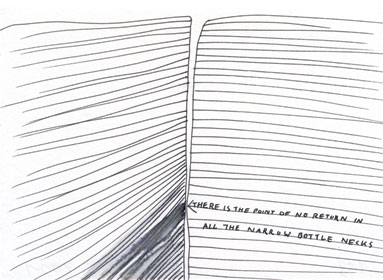 THERE IS THE POINT OF NO RETURN IN
ALL THE NARROW BOTTLE NECKS